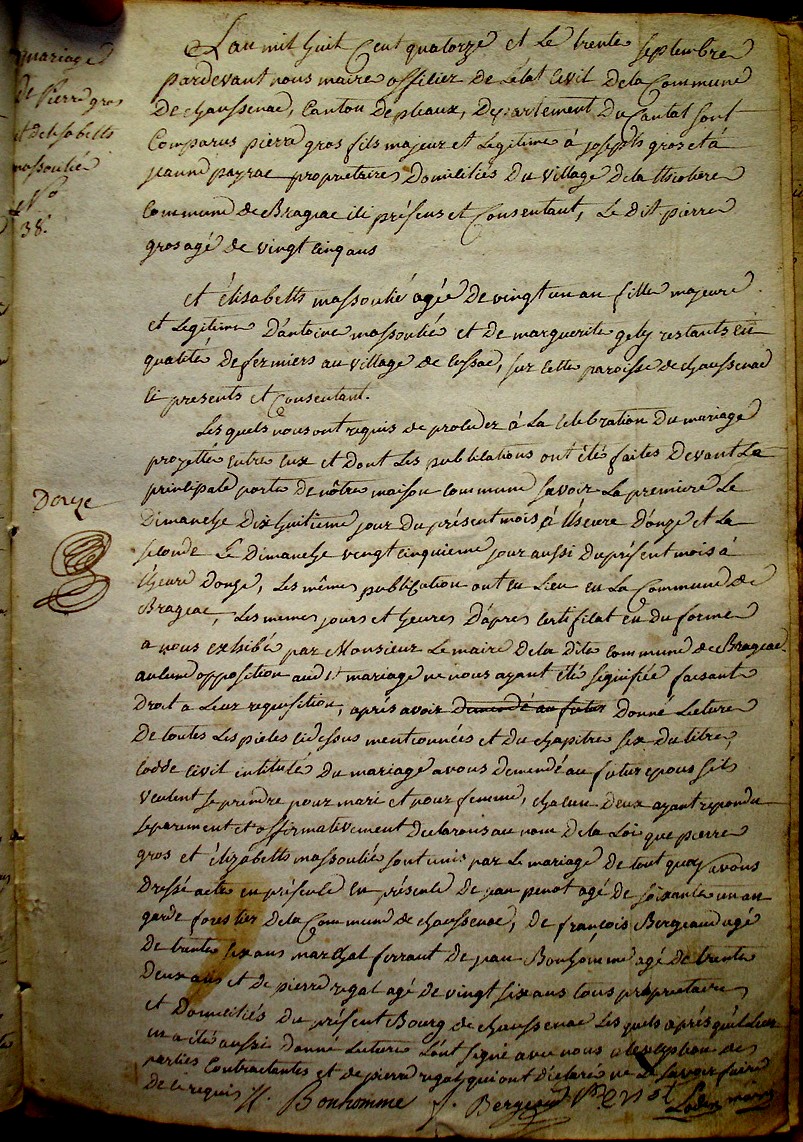 mariage
de Pierre gros
et delisabeth
massoulie
No
38.
Lan mil huit Cent quatorze et Le trente septembre
pardevant nous maire officier De L'état Civil De la Commune
De chaussenac, Canton De pleaux, Departement Du Cantal sont
Comparus pierre gros fils majeur et Legitime à joseph gros et à
jeanne payrac proprietaires Domiciliés Du village De la
Commune de Brageac ici présens et Consentant, Le dit pierre
gros agé de vingt cinq ans
et élisabeth massoulié agée De vingt un an fille majeure
et Legitime D'antoine massoulié et de marguerite gely restants en
qualité De fermiers au village de cussac, sur cette paroisse de chaussenac
ci presents et Consentant.
Les quels nous ont requis de proceder à La Celebration Du mariage
projetté entre eux et Dont Les publications ont été faites Devant La
principale porte De nôtre maison commune savoir La premiere Le
Dimanche Dix huitieme jour Du présent mois à L'heure D'onze et La
seconde Le Dimanche vingt cinquieme jour aussi Du présent mois à
L'heure Donze, Les mêmes publication ont eu Lieu en La Commune de
Brageac, Les memes jours et heures D'apres Certificat en Du forme
a nous exhibé par Monsieur Le maire De la Dite commune de Brageac.
aucune opposition aud.t mariage ne nous ayant été signifiée faisant
Droit a Leur requisition, après avoir Demandé au futur Donné Lecture
De toutes Les pieces cidessus mentionnées et Du chapitre six Du titre,
Codde Civil intitulé Du mariage avons Demandé au futur epous s'ils
veulent se prendre pour mari et pour femme, chacun Deux ayant repondu
separement et affirmativement Declarons au nom De la Loi que pierre
gros et élizabeth massoulié sont unis par Le mariage de tout quoy avons
Dressé acte en présence en présence De jean penot agé de soixante un an
garde forestier De la Commune de chaussenac, de françois Bergeaud agé
De trente six ans marechal ferrant de jean Bonhomme agé de trente
Deux ans et de pierre regal agé de vingt six ans tous proprietaires
et Domiciliés Du présent Bourg de chaussenac Les quels après qu'il Leur
en a été aussi Donné Lecture L'ont signé avec nous a Lexception des
parties Contractantes et de pierre regal qui ont Déclaré ne Le savoir faire
de ce requis J. Bonhomme f. Bergeaud Penot maire
Donze